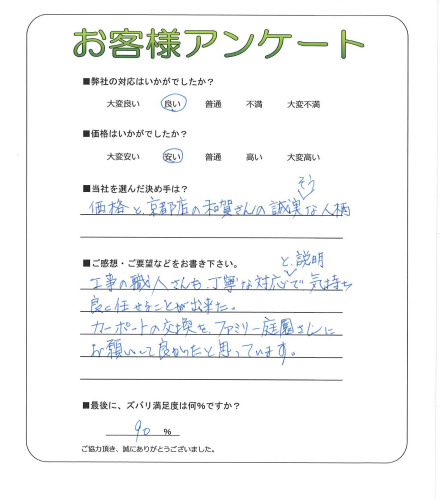 お客様アンケート
■弊社の対応はいかがでしたか？
大変良い 良い 普通 不満 大変不満
■価格はいかがでしたか？
大変安い 安い 普通 高い 大変高い
■当社を選んだ決め手は？
そう
価格と京都店の和賀さんの誠実な人柄
■ご感想・ご要望などをお書き下さい。
と、説明
工事の職人さんも丁寧な対応で気持ち
良く任せることが出来た。
カーポートの交換を、ファミリー庭園さんに
お願いして良かったと思っています。
■最後に、ズバリ満足度は何％ですか？
90 %
ご協力頂き、誠にありがとうございました。